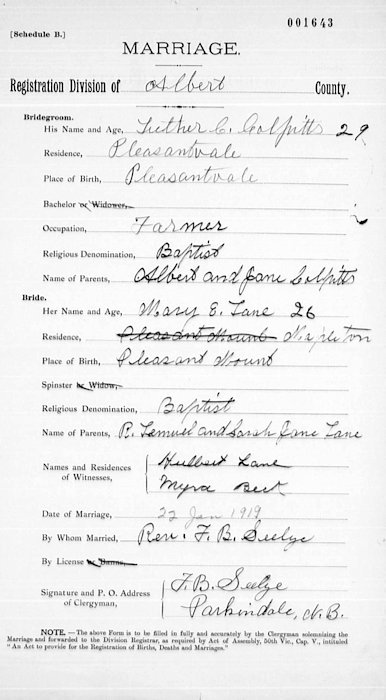 001643
[Schedule B.]
MARRIAGE.
Registration Division of Albert County.
Bridegroom.
His Name and Age, Luther C. Colpitts 29
Residence, Pleasantvale
Place of Birth, Pleasantvale
Bachelor or Widower,
Occupation, Farmer
Religious Denomination, Baptist
Name of Parents, Albert and Jane Colpitts
Bride.
Her Name and Age, Mary E. Lane 26
Residence, Pleasant Mount Mapleton
Place of Birth, Pleasant Mount
Spinster or Widow,
Religious Denomination, Baptist
Name of Parents, R. Lemuel and Sarah Jane Lane
Names and Residences of Witnesses, Hulbert Lane
Myra Bert
Date of Marriage, 22 Jan 1919
By Whom Married, Rev. F. B. Seelye
By License or Banns,
Signature and P. O. Address of Clergyman, F. B. Seelye
Parkindale, N. B.
NOTE. — The above Form is to be filled in fully and accurately by the Clergyman solemnizing the
Marriage and forwarded to the Division Registrar, as required by Act of Assembly, 50th Vic., Cap. V., intituled
"An Act to provide for the Registration of Births, Deaths and Marriages."